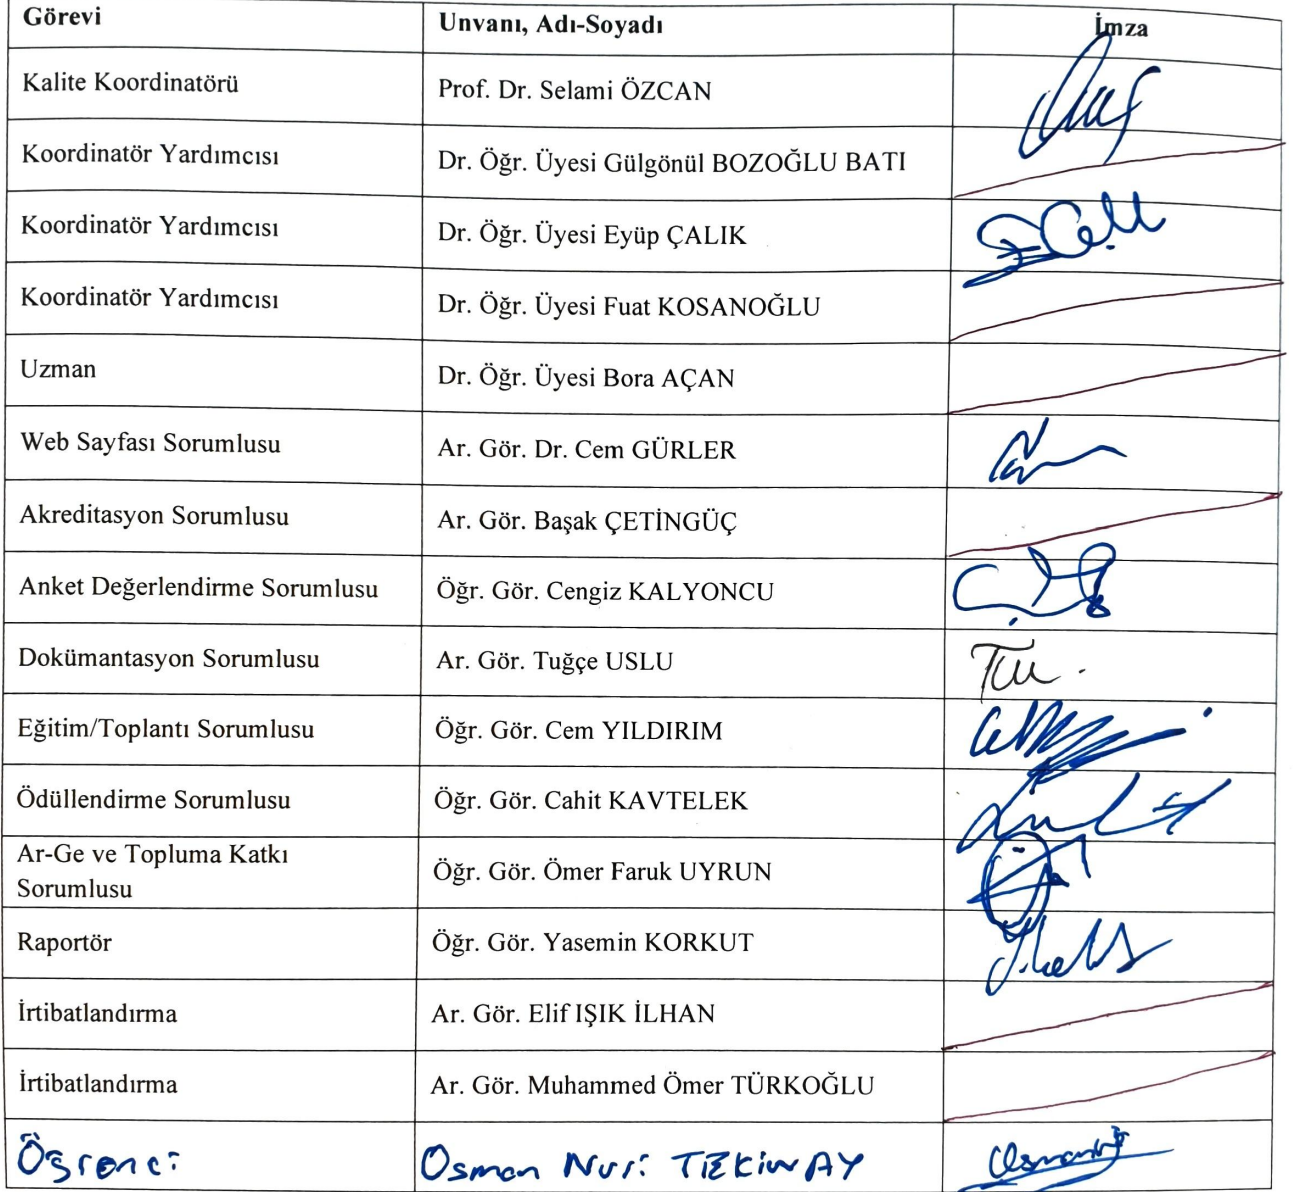 Görevi Unvanı, Adı-Soyadı İmza
Kalite Koordinatörü Prof. Dr. Selami ÖZCAN
Koordinatör Yardımcısı Dr. Öğr. Üyesi Gülgönül BOZOĞLU BATI
Koordinatör Yardımcısı Dr. Öğr. Üyesi Eyüp ÇALIK
Koordinatör Yardımcısı Dr. Öğr. Üyesi Fuat KOSANOĞLU
Uzman Dr. Öğr. Üyesi Bora AÇAN
Web Sayfası Sorumlusu Ar. Gör. Dr. Cem GÜRLER
Akreditasyon Sorumlusu Ar. Gör. Başak ÇETİNGÜÇ
Anket Değerlendirme Sorumlusu Öğr. Gör. Cengiz KALYONCU
Dokümantasyon Sorumlusu Ar. Gör. Tuğçe USLU
Eğitim/Toplantı Sorumlusu Öğr. Gör. Cem YILDIRIM
Ödüllendirme Sorumlusu Öğr. Gör. Cahit KAVTELEK
Ar-Ge ve Topluma Katkı
Sorumlusu Öğr. Gör. Ömer Faruk UYRUN
Raportör Öğr. Gör. Yasemin KORKUT
İrtibatlandırma Ar. Gör. Elif IŞIK İLHAN
İrtibatlandırma Ar. Gör. Muhammed Ömer TÜRKOĞLU
Öğrenci Osman Nuri TEKİNAY